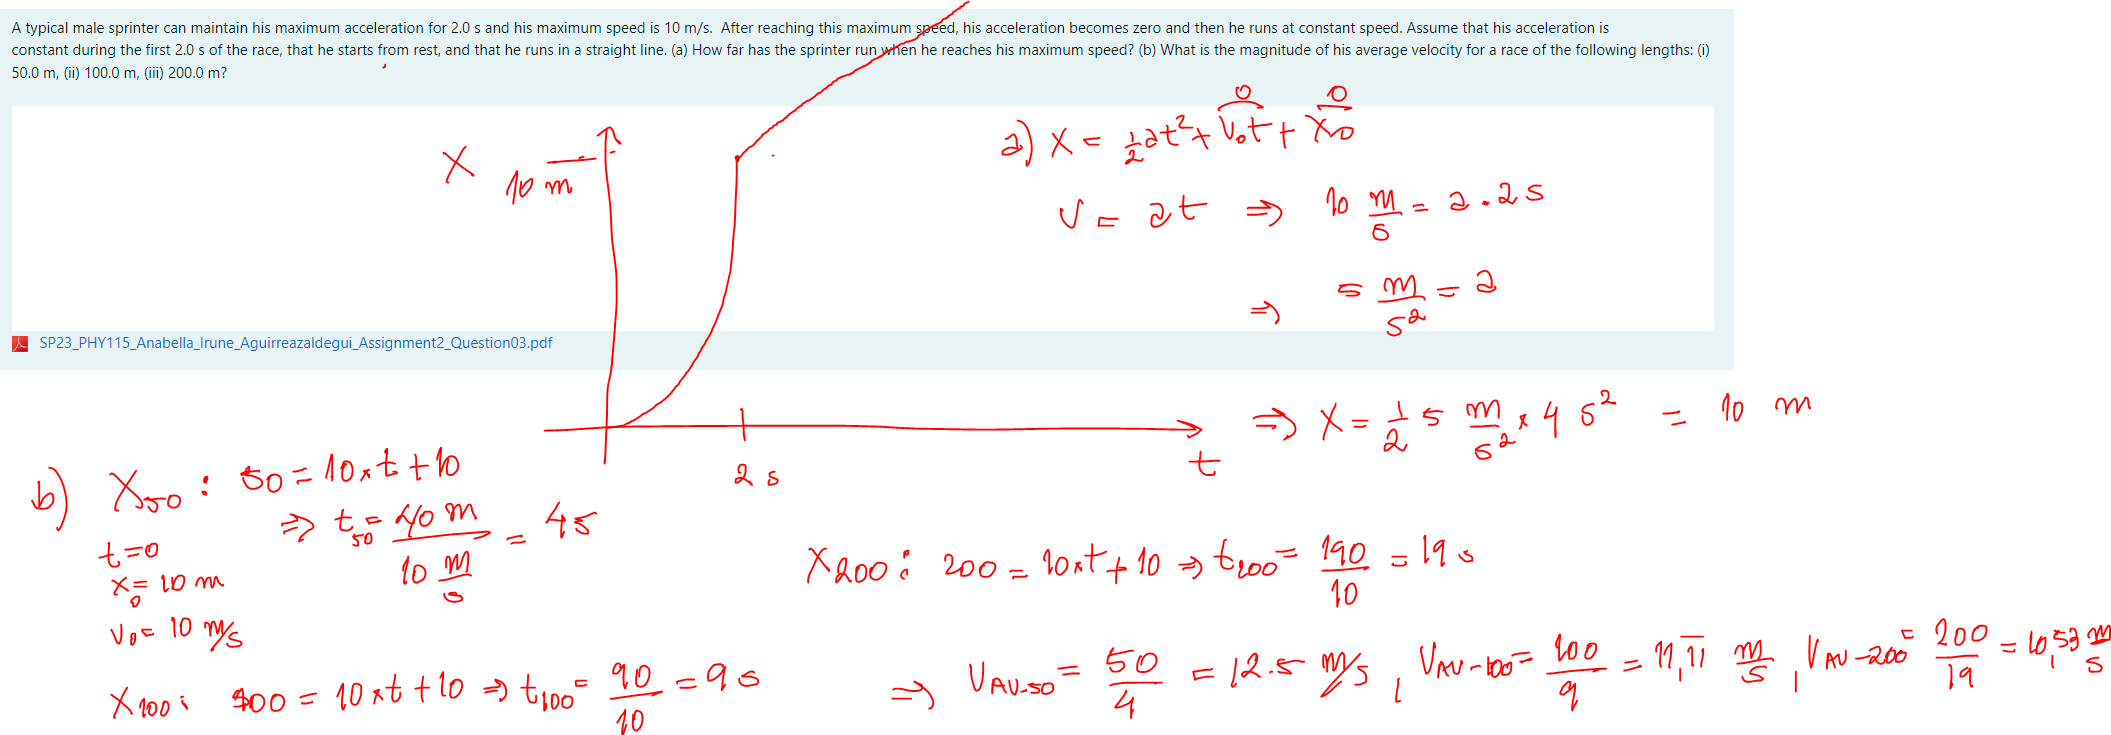 A typical male sprinter can maintain his maximum acceleration for 2.0 s and his maximum speed is 10 m/s. After reaching this maximum speed, his acceleration becomes zero and then he runs at constant speed. Assume that his acceleration is
constant during the first 2.0 s of the race, that he starts from rest, and that he runs in a straight line. (a) How far has the sprinter run when he reaches his maximum speed? (b) What is the magnitude of his average velocity for a race of the following lengths: (i)
50.0 m, (ii) 100.0 m, (iii) 200.0 m?
X
10 m
2 s
t
a) X = 1/2 at² + V₀t + X₀
0 0
V = at ⇒ 10 m/s = a . 2 s
⇒ 5 m/s² = a
SP23_PHY115_Anabella_Irune_Aguirreazaldegui_Assignment2_Question03.pdf
⇒ X = 1/2 5 m/s² × 4 s² = 10 m
b) X50 : 50 = 10×t + 10
⇒ t50 = 40 m / 10 m/s = 4 s
t=0
X₀ = 10 m
V₀ = 10 m/s
X100 : 100 = 10×t + 10 ⇒ t100 = 90/10 = 9 s
X200 : 200 = 10×t + 10 ⇒ t200 = 190/10 = 19 s
⇒ VAV-50 = 50/4 = 12.5 m/s , VAV-100 = 100/9 = 11,11 m/s , VAV-200 = 200/19 = 10,53 m/s